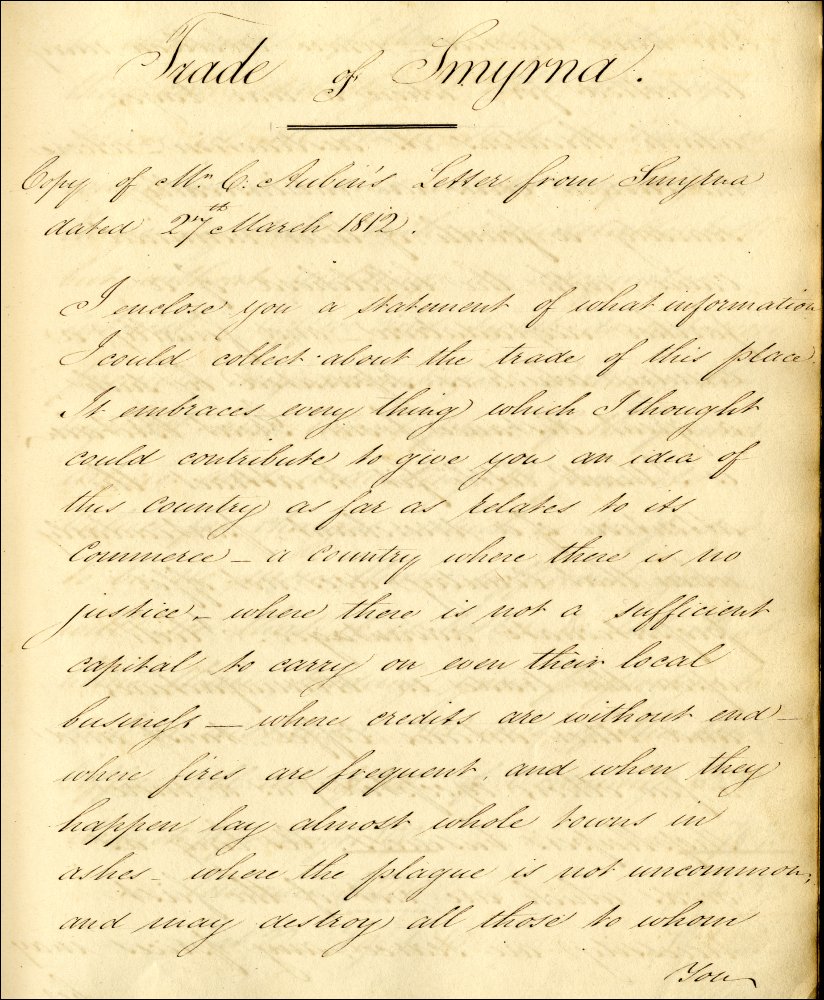 Trade of Smyrna.
Copy of Mr. C. Aubin's Letter from Smyrna
dated 27th March 1812.
I enclose you a statement of what information
I could collect about the trade of this place.
It embraces every thing which I thought
could contribute to give you an idea of
this country as far as relates to its
Commerce – a country where there is no
justice – where there is not a sufficient
capital to carry on even their local
business – where credits are without end –
where fires are frequent, and when they
happen lay almost whole towns in
ashes – where the plague is not uncommon,
and may destroy all those to whom
You